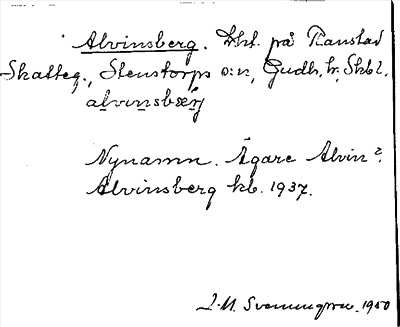 Alvinsberg. Lht. på Ranstad
Skatteg., Stenstorps s:n, Gudh. h., Skbl.
Nynamn. Ägare Alvin?.
Alvinsberg kb. 1937.
1950